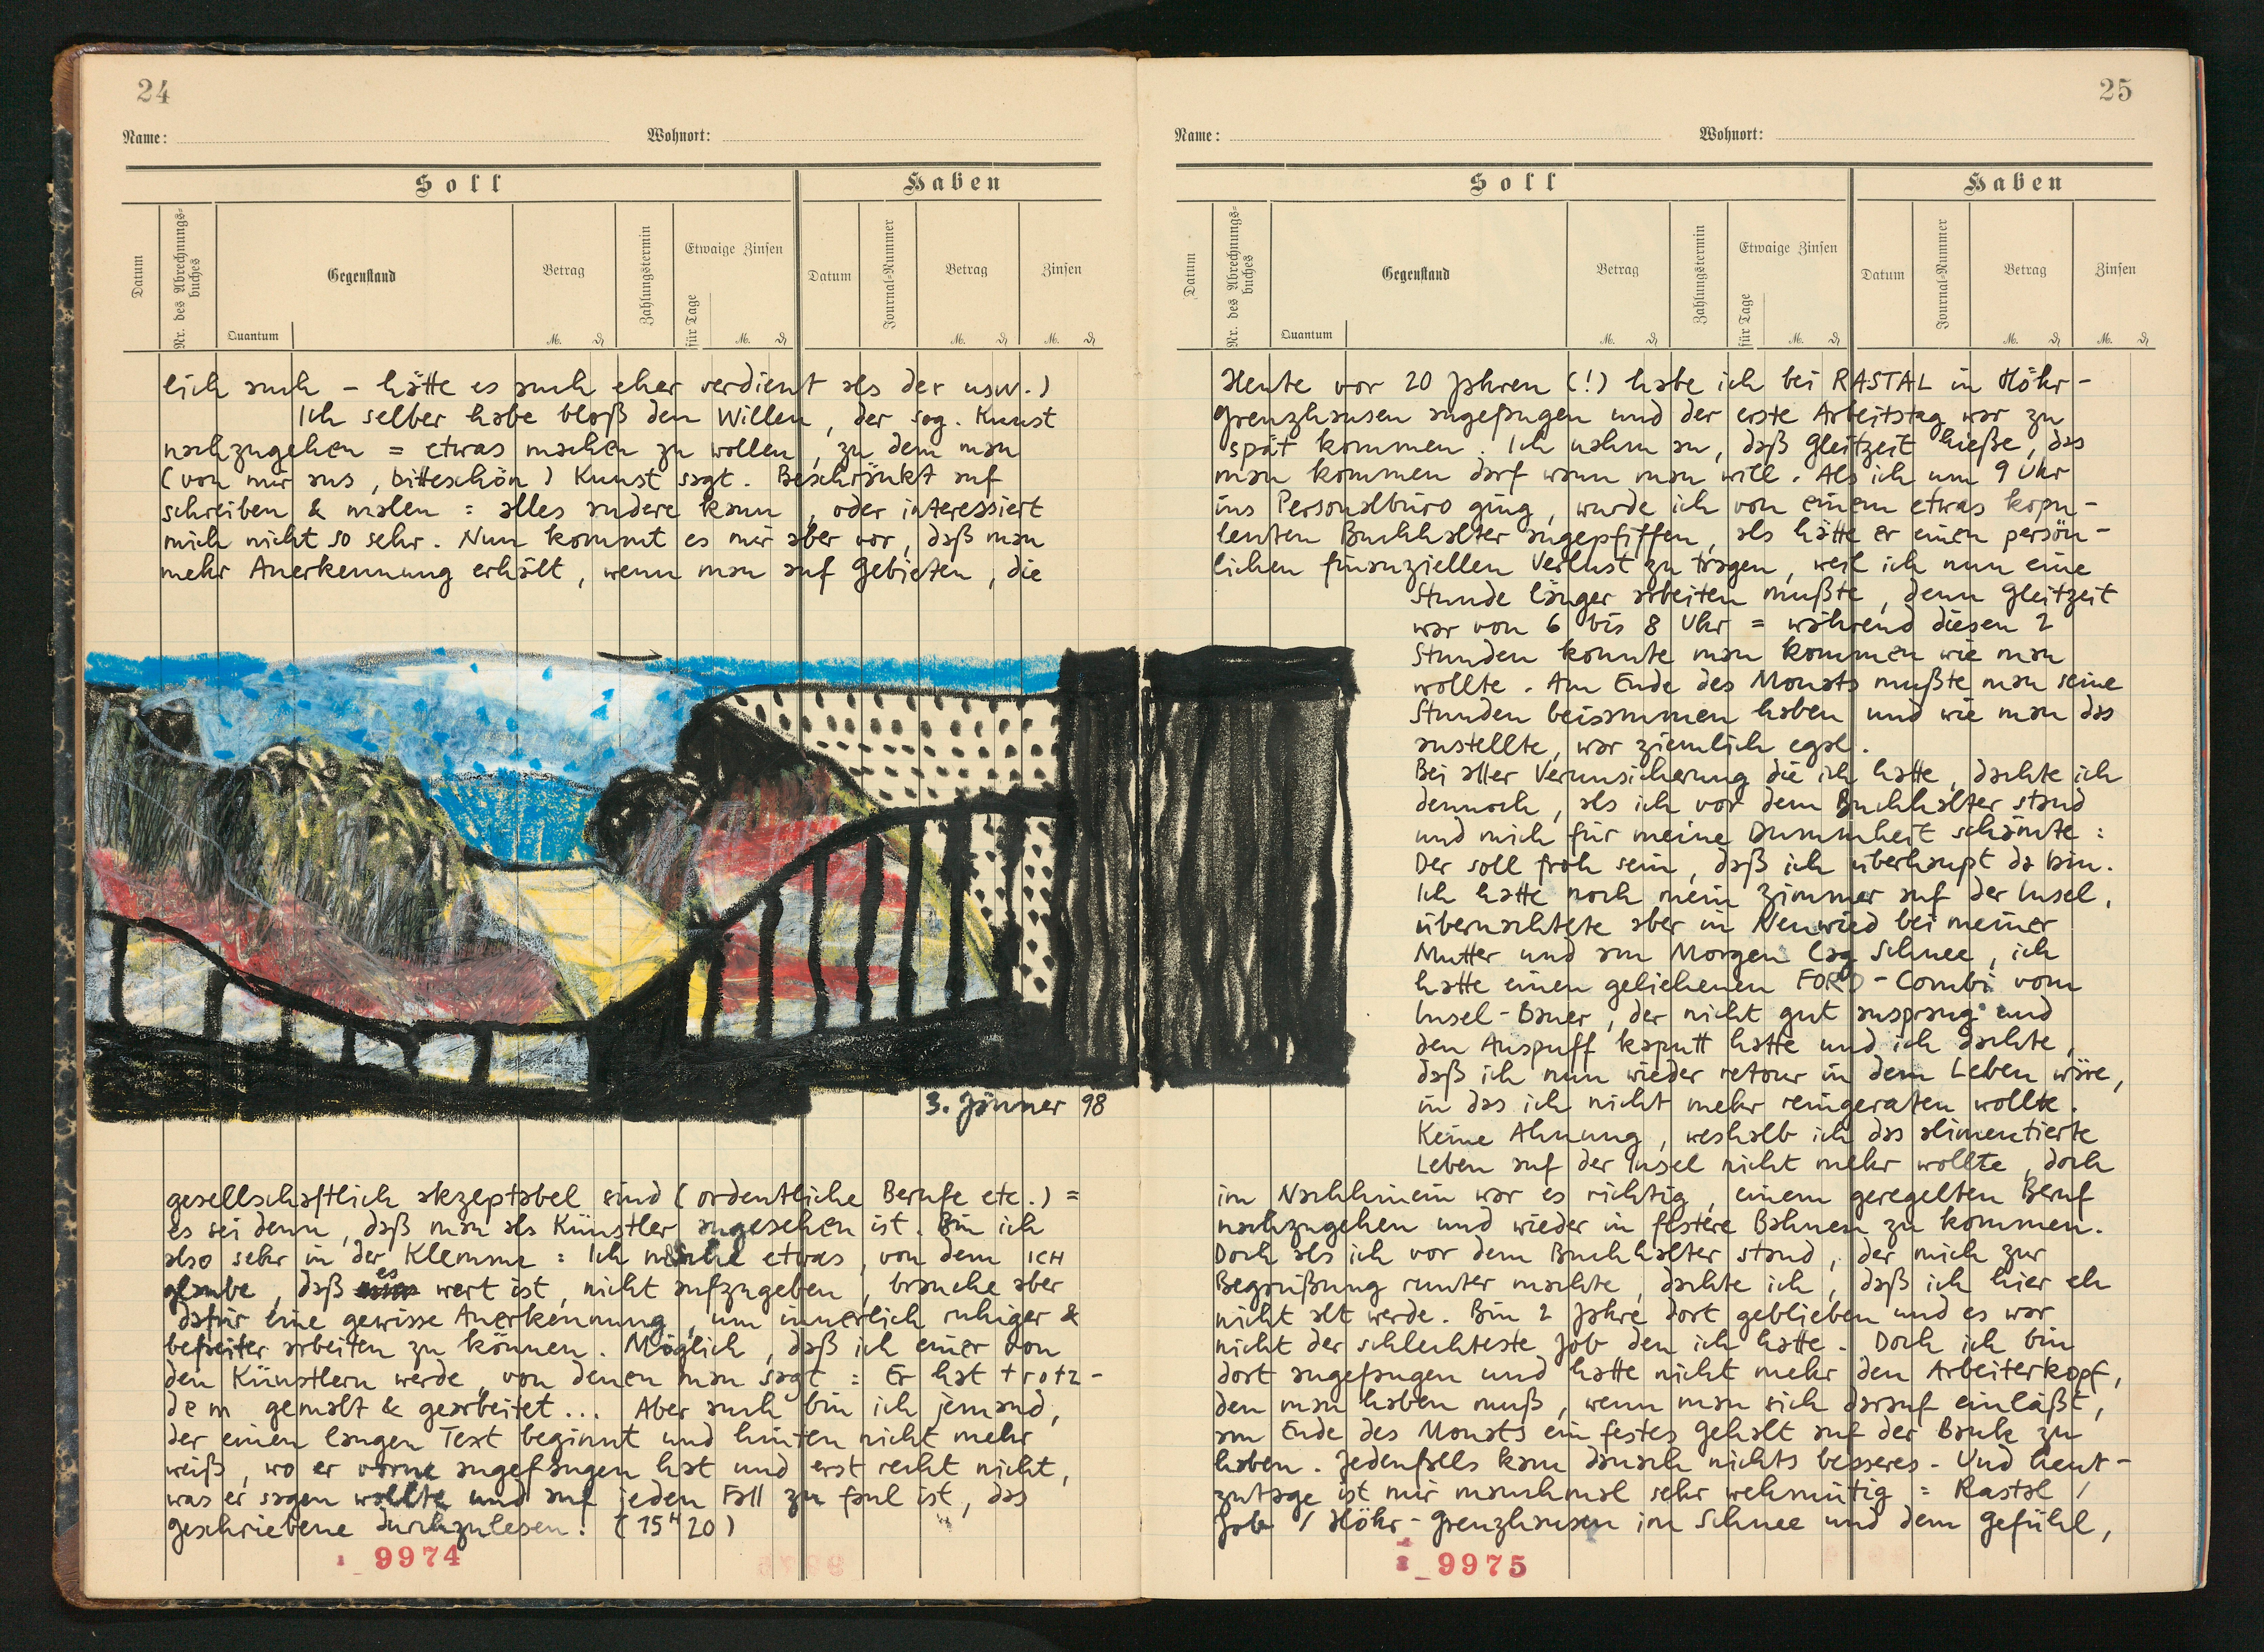 24
Name: Wohnort:
Soll Haben
Datum
Nr. des Abrechnungs-
buches
Gegenstand
Quantum
Betrag
M. ₰
Zahlungstermin
Etwaige Zinsen
für Tage
M. ₰
Datum
Journal-Nummer
Betrag
M. ₰
Zinsen
M. ₰
lich auch – hätte es auch eher verdient als der usw.)
Ich selber habe bloß den Willen, der sog. Kunst
nachzugehen = etwas machen zu wollen, zu dem man
(von mir aus, bitteschön) Kunst sagt. Beschränkt auf
schreiben & malen : alles andere kann, oder interessiert
mich nicht so sehr. Nun kommt es mir aber vor, daß man
mehr Anerkennung erhält, wenn man auf Gebieten, die
3. Jänner 98
gesellschaftlich akzeptabel sind (ordentliche Berufe etc.) =
es sei denn, daß man als Künstler angesehen ist. Bin ich
also sehr in der Klemme : Ich mache etwas, von dem ICH
glaube, daß es wert ist, nicht aufzugeben, brauche aber
dafür eine gewisse Anerkennung, um innerlich ruhiger &
befreiter arbeiten zu können. Möglich, daß ich einer von
den Künstlern werde, von denen man sagt : Er hat trotz-
dem gemalt & gearbeitet... Aber auch bin ich jemand,
der einen langen Text beginnt und hinten nicht mehr
weiß, wo er vorne angefangen hat und erst recht nicht,
was er sagen wollte und auf jeden Fall zu faul ist, das
geschriebene durchzulesen! (15H20)
9974
25
Name: Wohnort:
Soll Haben
Datum
Nr. des Abrechnungs-
buches
Gegenstand
Quantum
Betrag
M. ₰
Zahlungstermin
Etwaige Zinsen
für Tage
M. ₰
Datum
Journal-Nummer
Betrag
M. ₰
Zinsen
M. ₰
Heute vor 20 Jahren (!) habe ich bei RASTAL in Höhr-
grenzhausen angefangen und der erste Arbeitstag war zu
spät kommen. Ich nahm an, daß Gleitzeit hieße, das
man kommen darf wann man will. Als ich um 9 Uhr
ins Personalbüro ging, wurde ich von einem etwas kopu-
lenten Buchhalter angepfiffen, als hätte er einen persön-
lichen finanziellen Verlust zu tragen, weil ich nun eine
Stunde länger arbeiten mußte, denn Gleitzeit
war von 6 bis 8 Uhr = während diesen 2
Stunden konnte man kommen wie man
wollte. Am Ende des Monats mußte man seine
Stunden beisammen haben und wie man das
anstellte, war ziemlich egal.
Bei aller Verunsicherung die ich hatte, dachte ich
dennoch, als ich vor dem Buchhalter stand
und mich für meine Dummheit schämte :
Der soll froh sein, daß ich überhaupt da bin.
Ich hatte noch mein Zimmer auf der Insel,
übernachtete aber in Neuwied bei meiner
Mutter und am Morgen lag Schnee, ich
hatte einen geliehenen FORD-Combi vom
Insel-Bauer, der nicht gut ansprang und
den Auspuff kaputt hatte und ich dachte,
daß ich nun wieder retour in dem Leben wäre,
in das ich nicht mehr reingeraten wollte.
Keine Ahnung, weshalb ich das alimentierte
Leben auf der Insel nicht mehr wollte, doch
im Nachhinein war es richtig, einem geregelten Beruf
nachzugehen und wieder in festere Bahnen zu kommen.
Doch als ich vor dem Buchhalter stand, der mich zur
Begrüßung runter machte, dachte ich, daß ich hier eh
nicht alt werde. Bin 2 Jahre dort geblieben und es war
nicht der schlechteste Job den ich hatte. Doch ich bin
dort angefangen und hatte nicht mehr den Arbeiterkopf,
den man haben muß, wenn man sich darauf einläßt,
am Ende des Monats ein festes Gehalt auf der Bank zu
haben. Jedenfalls kam danach nichts besseres. Und heut-
zutage ist mir manchmal sehr wehmütig = Rastal /
Job / Höhr-Grenzhausen im Schnee und dem Gefühl,
9975